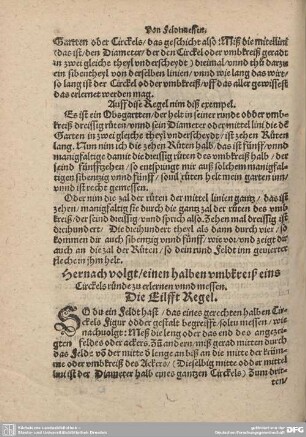 Von Feldmessen.
Gartten oder Circkels / das geschicht also: Miß die mitellini
das ist / den Diameter / der den Circkel oder vmbkreiß geradt
in zwei gleiche theyl vnderscheydt / dreimal / vnnd thů darzů
ein sibentheyl von derselben linien / vnnd wie lang das wirt /
so lang ist der Circkel odder vmbkreiß / vß das aller gewissest
das erlernet werden mag.
Auff diße Regel nim diß exempel.
Es ist ein Obsgarten / der helt in seiner runde odder vmb-
kreiß dreissig růten / vnnd sein Diameter oder mittel lini die dē
Garten in zwei gleiche theyl vnderscheydt / ist zehen Růten
lang. Nun nim ich die zehen Růten halb / das ist fünff / vnnd
manigfaltige damit die dreissig růten des vmbkreiß halb / der
seind fünffzehen / so entspringt mir auß solchem manigfal-
tigen sibenzig vnnd fünff / souil růten helt mein garten inn /
vnnd ist recht gemessen.
Oder nim die zal der růten der mittel linien gantz / das ist
zehen / manigfaltig sie durch die gantz zal der růten des vmb
kreiß / der seind dreissig / vnnd sprich also. Zehen mal dreissig ist
diehundert. Die diehundert theyl als dann durch vier / so
kommen dir auch sibenzig vnnd fünff / wie vor / vnd zeigt dir
auch an die zal der Růten / so dein rund Feldt inn gevierter
flech in ihm helt.
Hernach volgt / einen halben vmbkreiß eins
Circkels ründe zů erlernen vnnd messen.
Die Eilfft Regel.
SO du ein Feldt hast / das eines gerechten halben Cir
ckels Figur odder gestalt begreifft / solu messen / wie
nachuolgt: Meß die leng oder das end des angezeig
ten feldes oder ackers. Zů andern / miß gerad mitten durch
das Feldt vō der mitte d lenge an biß an die mitte der krüm-
me oder vmbkreiß des Ackers / (Dieselbig mitte odder mittel
lini ist der Diameter halb eines gantzen Circkels) Zum drit-
ten /